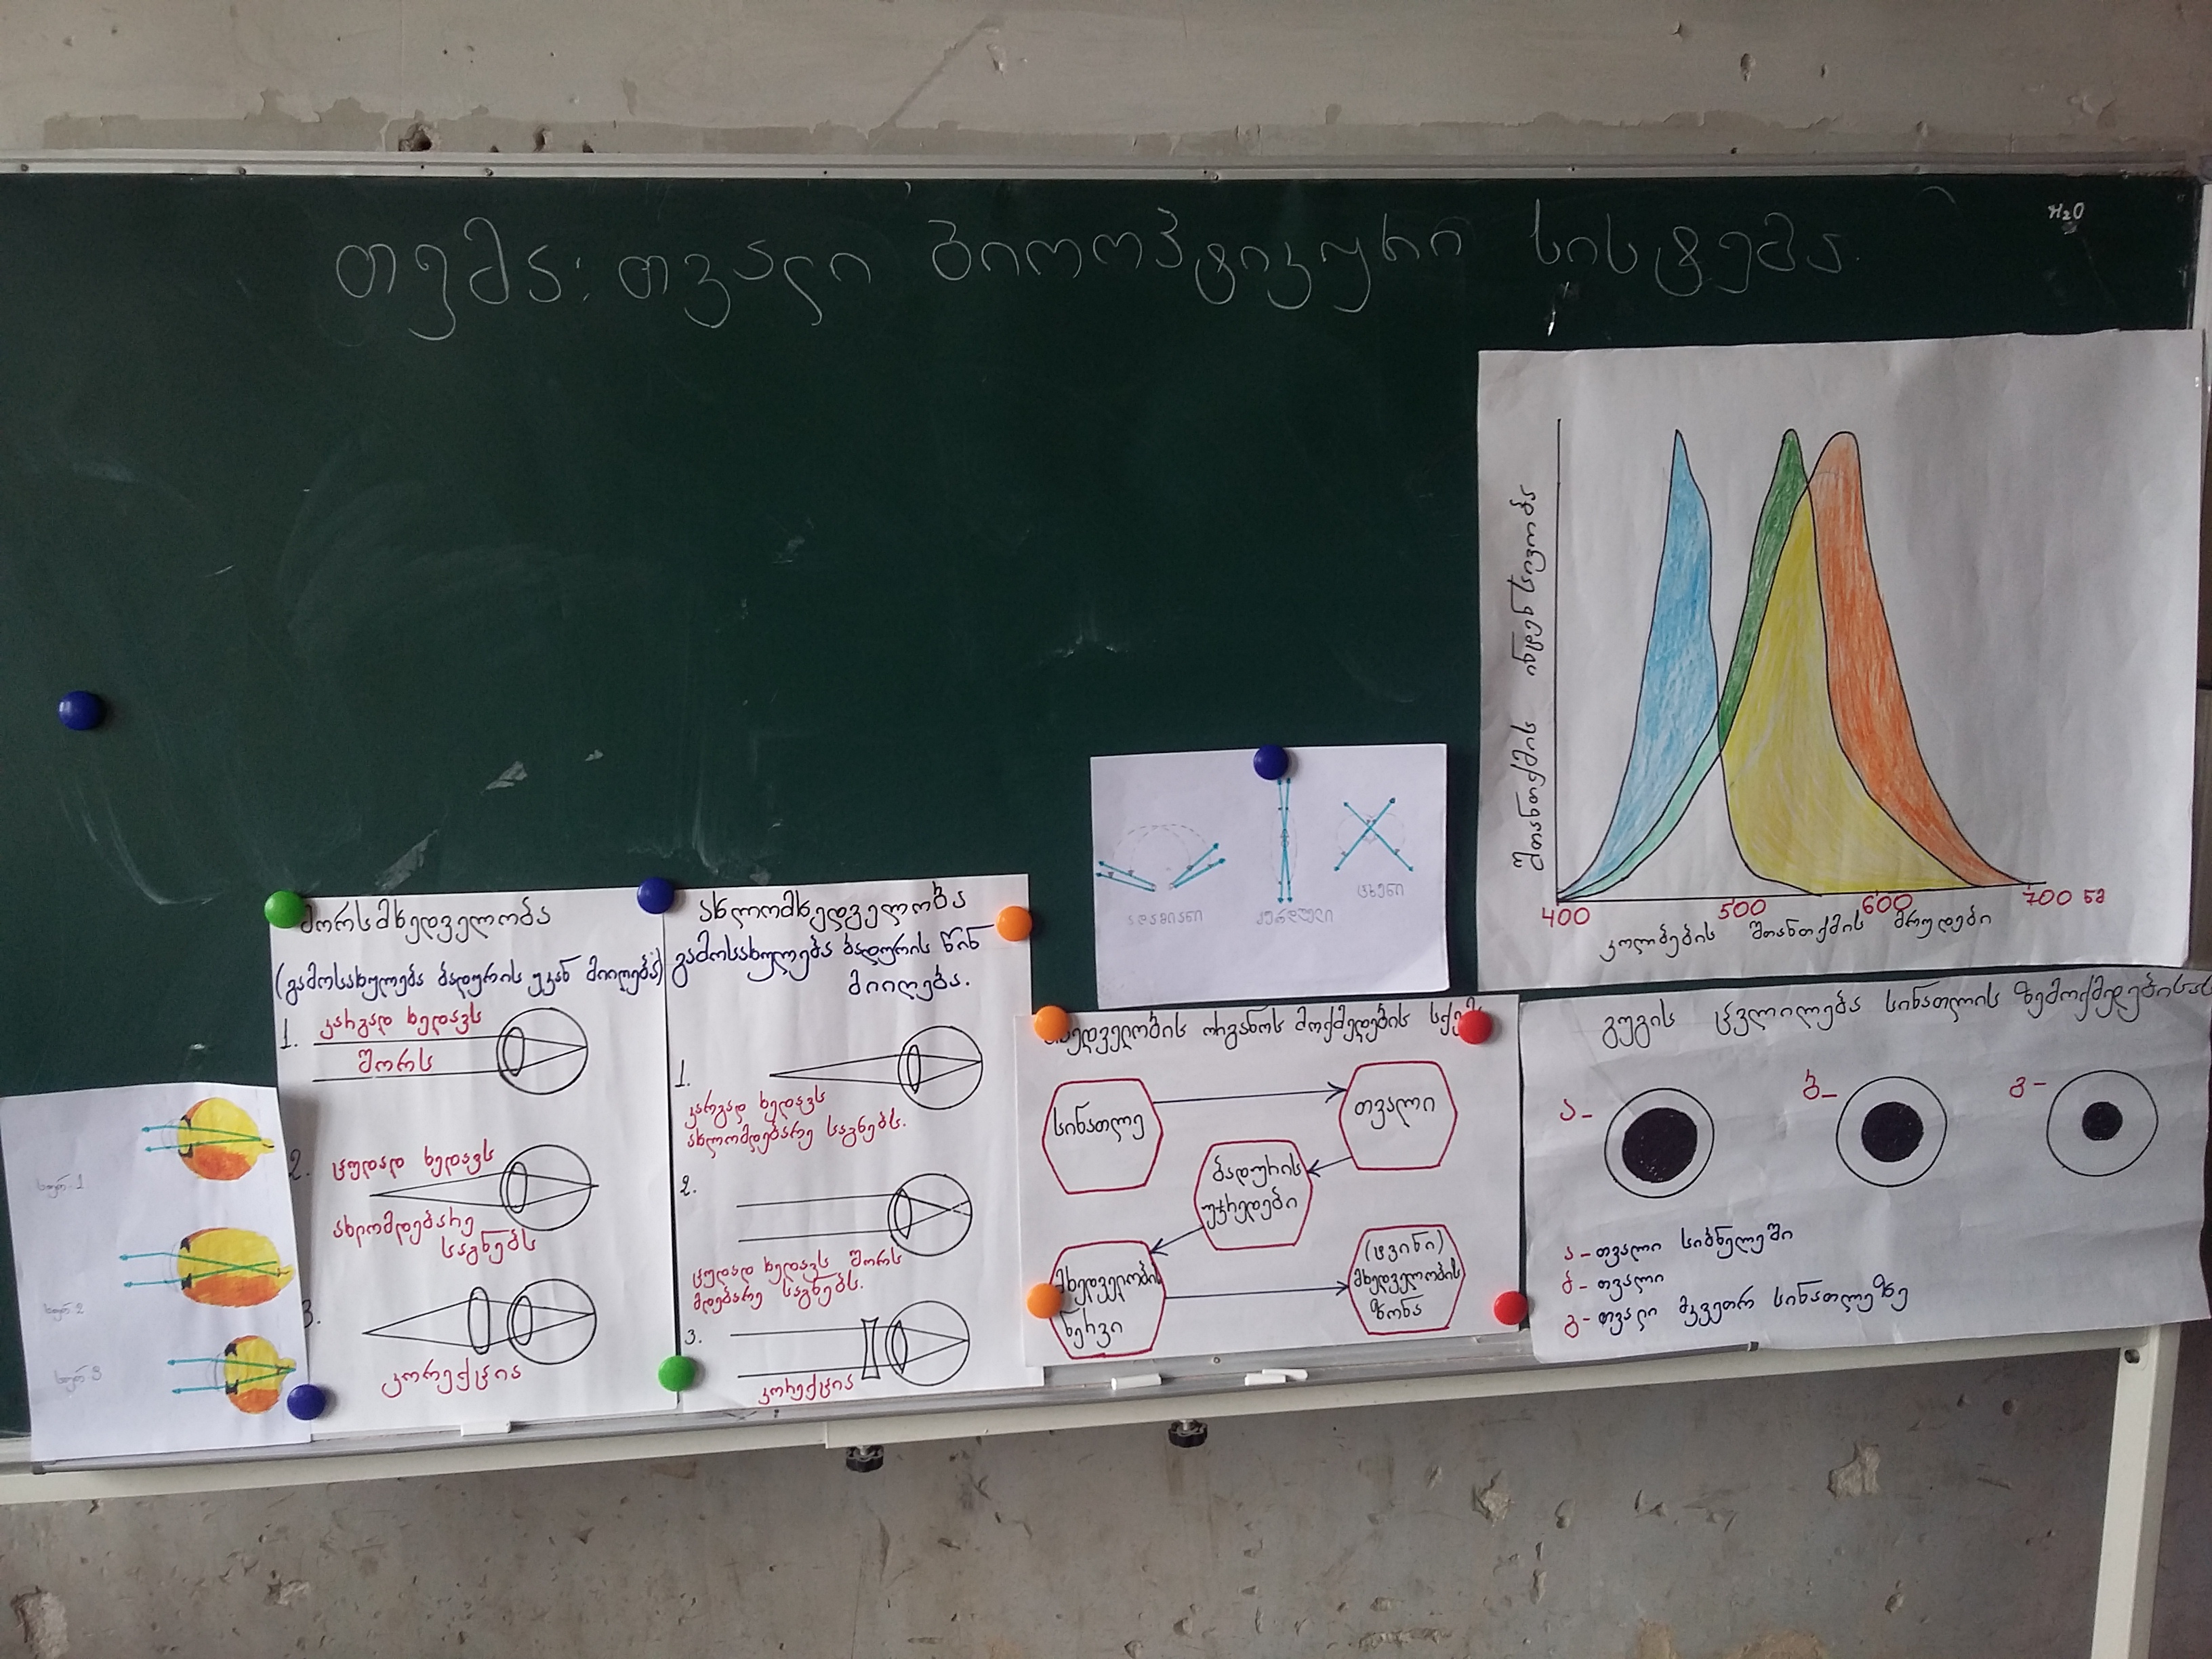 თემა: თვალი ბიოოპტიკური სისტემა.
H₂O
შთანთქმის ინტენსივობა
400 500 600 700 ნმ
კოლბების შთანთქმის მრუდები
ადამიანი
კურდღელი
ცხენი
შორსმხედველობა
(გამოსახულება ბადურის უკან მიიღება)
1. კარგად ხედავს
შორს
2. ცუდად ხედავს
ახლომდებარე
საგნებს
3.
კორექცია
ახლომხედველობა
გამოსახულება ბადურის წინ
მიიღება.
1.
კარგად ხედავს
ახლომდებარე საგნებს.
2.
ცუდად ხედავს შორს
მდებარე საგნებს.
3.
კორექცია
მხედველობის ორგანოს მოქმედების სქემა
სინათლე
თვალი
ბადურის
უჯრედები
მხედველობის
ნერვი
(ტვინი)
მხედველობის
ზონა
გუგის ცვლილება სინათლის ზემოქმედებისას
ა-
ბ-
გ-
ა - თვალი სიბნელეში
ბ - თვალი
გ - თვალი მკვეთრ სინათლეზე
სურ. 1
სურ. 2
სურ 3